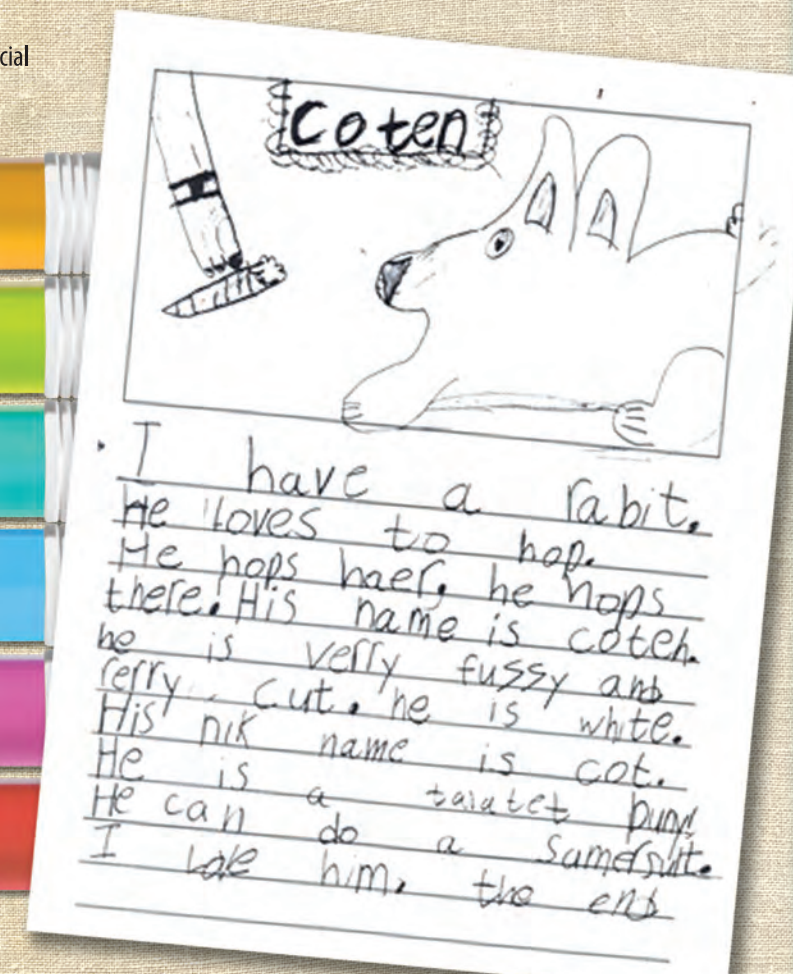 cial
coten
I have a rabit.
He loves to hop.
He hops haer, he hops
there. His name is coten.
he is verry fussy and
rerry cut. he is white.
His nik name is cot.
He is a talatet buny
He can do a samersult.
I love him. the end